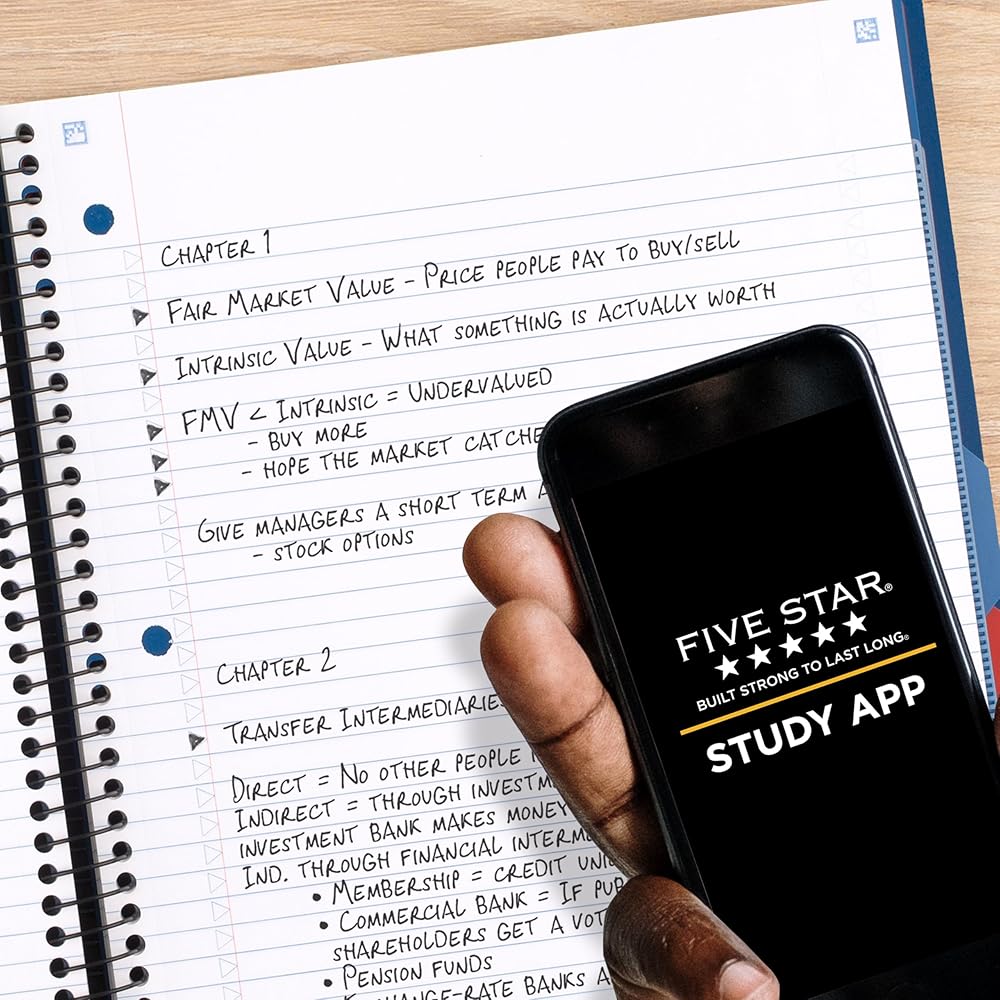 CHAPTER 1
FAIR MARKET VALUE - PRICE PEOPLE PAY TO BUY/SELL
INTRINSIC VALUE - WHAT SOMETHING IS ACTUALLY WORTH
FMV < INTRINSIC = UNDERVALUED
- BUY MORE
- HOPE THE MARKET CATCHE
GIVE MANAGERS A SHORT TERM
- STOCK OPTIONS
CHAPTER 2
TRANSFER INTERMEDIARIES
DIRECT = NO OTHER PEOPLE
INDIRECT = THROUGH INVESTM
INVESTMENT BANK MAKES MONEY
IND. THROUGH FINANCIAL INTERM
• MEMBERSHIP = CREDIT UNI
• COMMERCIAL BANK = IF PUB
SHAREHOLDERS GET A VOT
• PENSION FUNDS
HANGE-RATE BANKS A
FIVE STAR®
★★★★★
BUILT STRONG TO LAST LONG®
STUDY APP